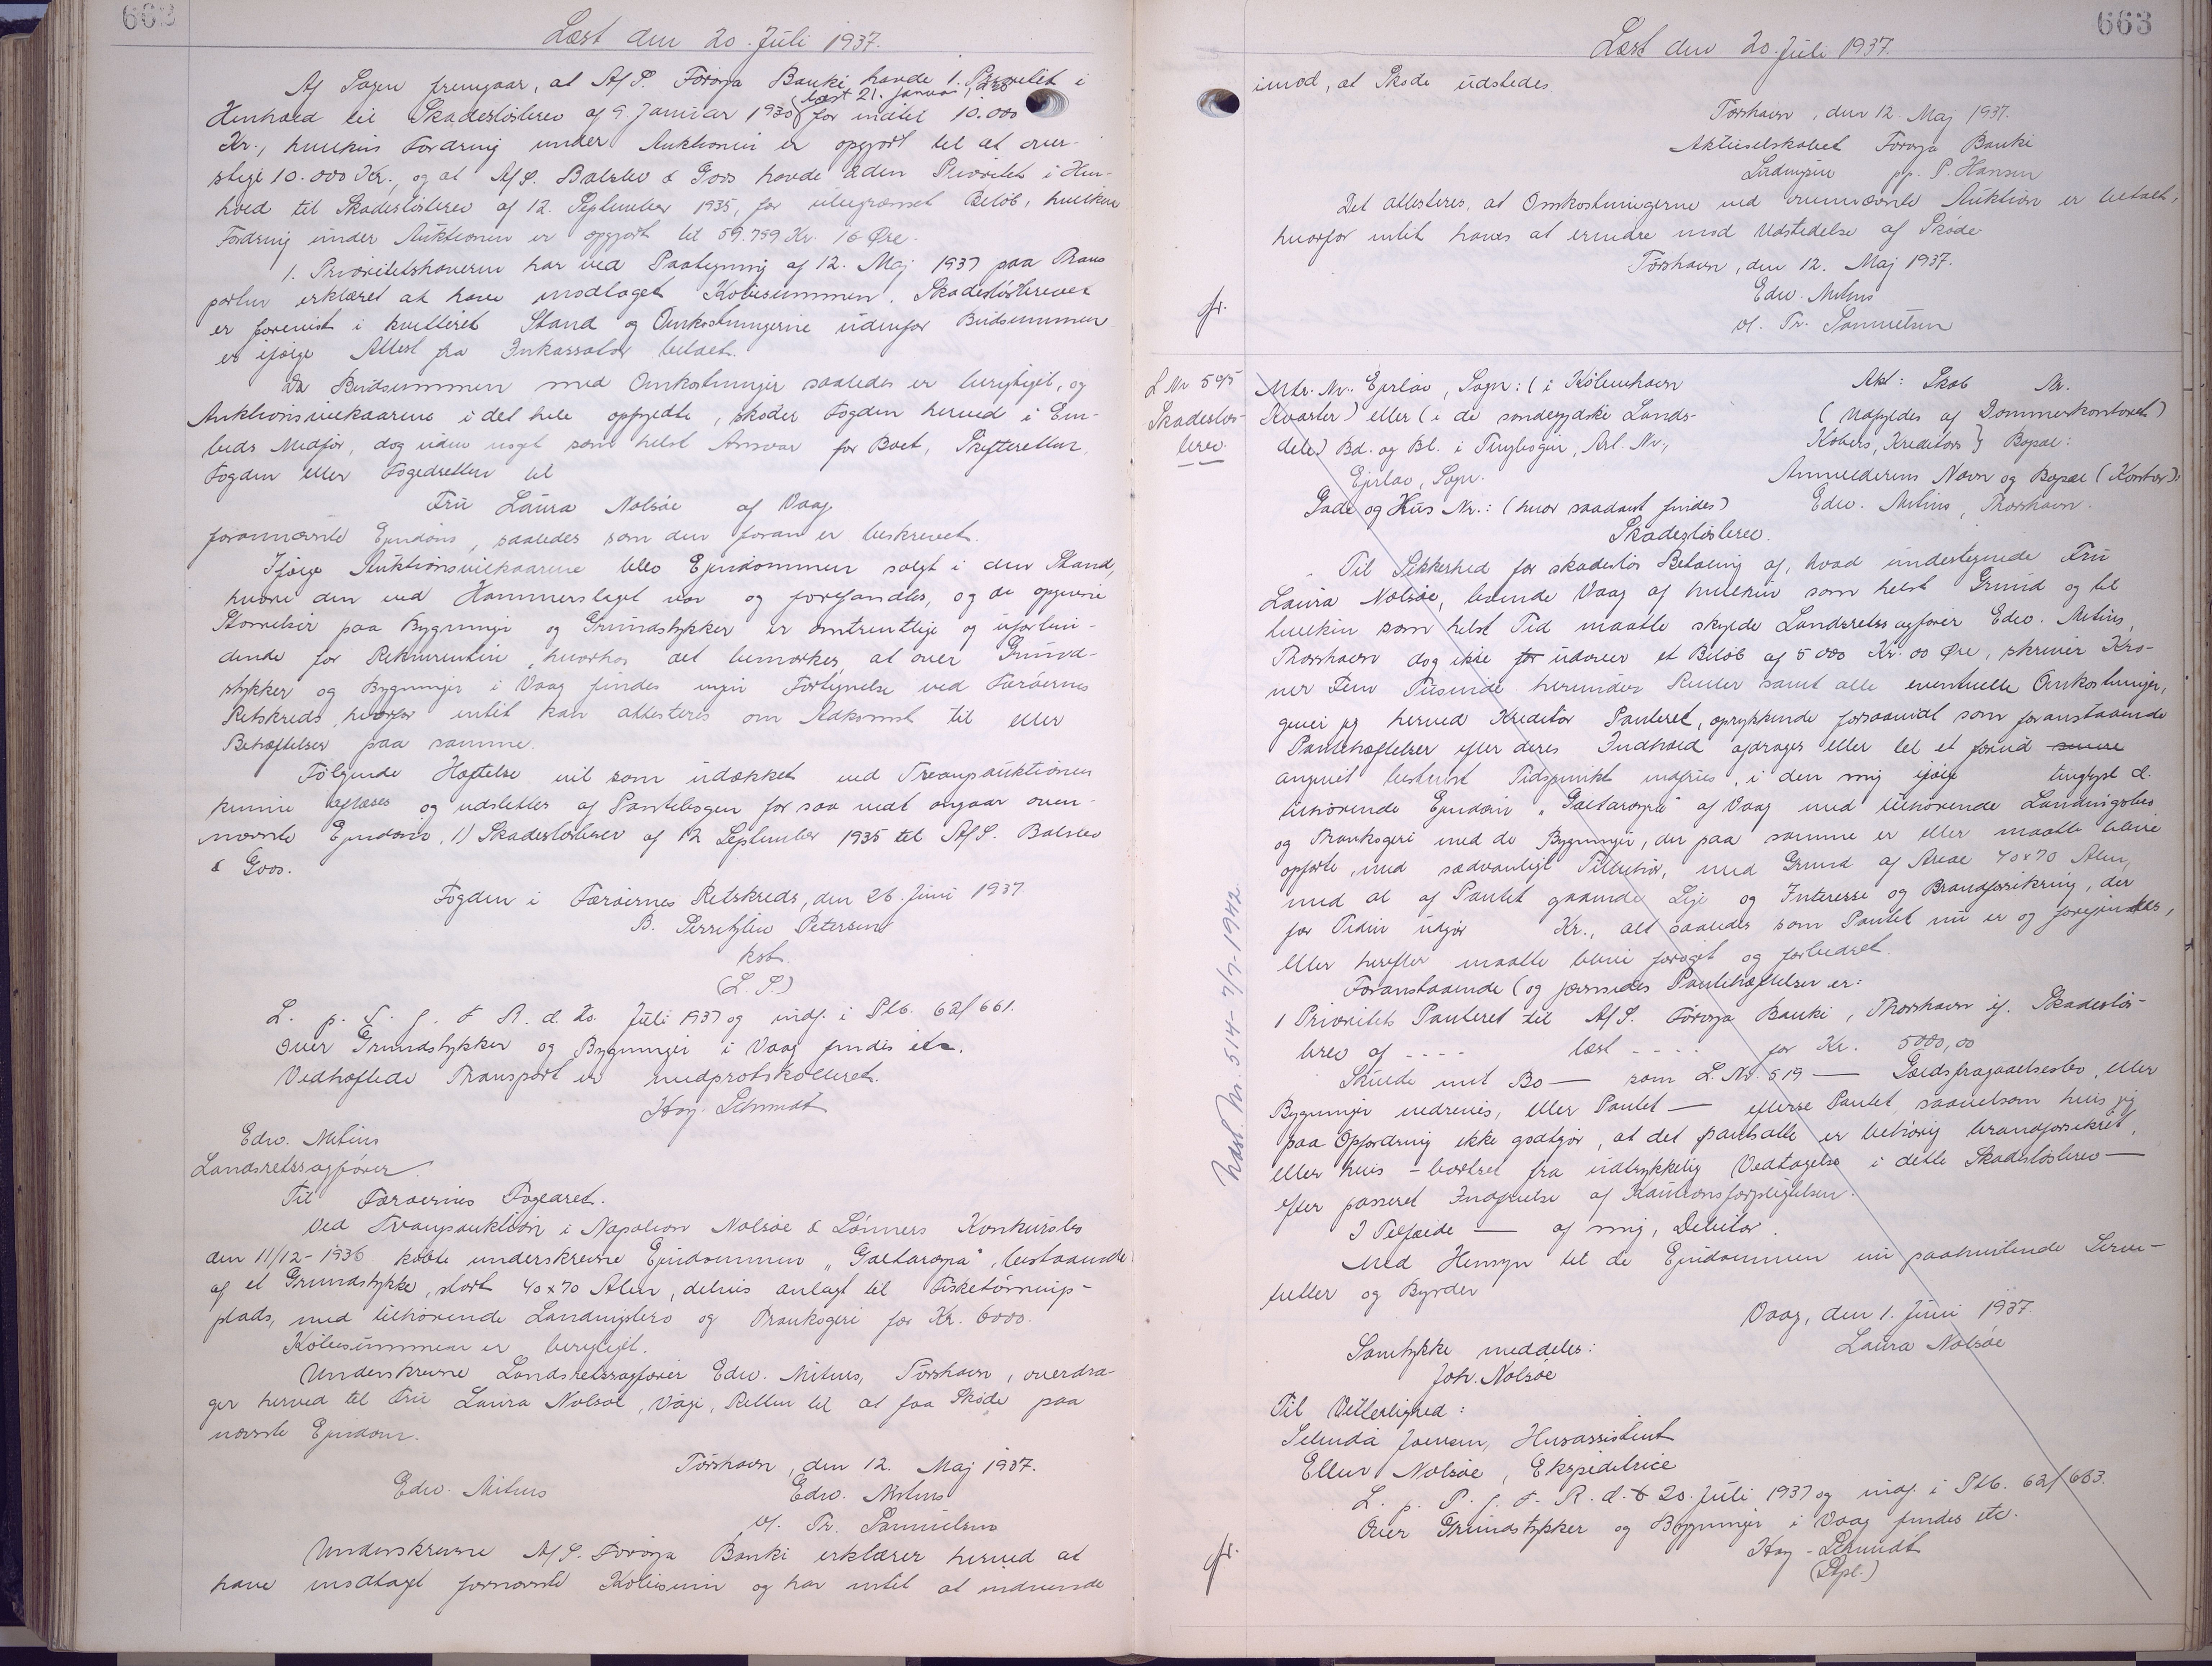 662
Læst den 20. Juli 1937.
Af Sagen fremgaar, at A/S. Føroya Banki havde 1. Prioritet i
Henhold til Skadesløsbrev af 9. Januar 1930 (læst 21. Januar 1930) for indtil 10.000
Kr., hvilken Fordring under Auktionen er opgjort til at over-
stige 10.000 Kr., og at A/S. Balslev & Goos havde 2den Prioritet i Hen-
hold til Skadesløsbrev af 12. September 1935, for ubegrænset Beløb, hvilken
Fordring under Auktionen er opgjort til 59.759 Kr. 16 Øre.
1. Prioritetshaveren har ved Paategning af 12. Maj 1937 paa Trans
porten erklæret at have modtaget Købesummen. Skadesløsbrevet
er forevist i kvitteret Stand og Omkostningerne udenfor Budsummen
er ifølge Attest fra Inkassator betalt.
Da Budsummen med Omkostninger saaledes er berigtiget, og
Auktionsvilkaarene i det hele opfyldte, skøder Fogden herved i Em-
beds Medfør, dog uden noget som helst Ansvar for Boet, Skifteretten,
Fogden eller Fogedretten til
Fru Laura Nolsøe af Vaag
forannævnte Ejendom, saaledes som den foran er beskrevet.
Ifølge Auktionsvilkaarene blev Ejendommen solgt i den Stand,
hvori den ved Hammerslaget var og forefandtes, og de opgivne
Størrelser paa Bygninger og Grundstykker er omtrentlige og uforbin-
dende for Rekvirenten, hvorhos det bemærkes, at over Grund-
stykker og Bygninger i Vaag findes ingen Fortegnelse ved Færøernes
Retskreds, hvorfor intet kan attesteres om Adkomst til eller
Behæftelser paa samme.
Følgende Hæftelse vil som udækket ved Tvangsauktionen
kunne aflæses og udslettes af Pantebogen for saa vidt angaar oven-
nævnte Ejendom, 1) Skadesløsbrev af 12 September 1935 til A/S. Balslev
& Goos.
Fogden i Færøernes Retskreds, den 26. Juni 1937.
B. Petersen
kst.
(L. S.)
L. p. T. f. F. R. d. 20. Juli 1937 og indf. i Ptb. 62/661.
Over Grundstykker og Bygninger i Vaag findes etc.
Vedhæftede Transport er medprotokolleret.
Høy-Schmidt
Edw. Mitens
Landsretssagfører.
Til Færøernes Fogedret.
Ved Tvangsauktion i Napoleon Nolsøe & Sønners Konkursbo
den 11/12-1936 købte underskrevne Ejendommen "Galtaroyra", bestaaende
af et Grundstykke, stort 40x70 Alen, delvis anlagt til Fisketørrings-
plads, med tilhørende Landingsbro og Trankogeri for Kr. 6000.
Købesummen er berigtiget.
Underskrevne Landsretssagfører Edw. Mitens, Tórshavn, overdra-
ger herved til Fru Laura Nolsøe, Vági, Retten til at faa Skøde paa
nævnte Ejendom.
Tórshavn, den 12. Maj 1937.
Edw. Mitens Edw. Mitens
v/. Tr. Samuelsen
Underskrevne A/S. Føroya Banki erklærer herved at
have modtaget fornævnte Købesum og har intet at indvende
663
Læst den 20. Juli 1937.
imod, at Skøde udstedes
Tórshavn, den 12. Maj 1937.
Aktieselskabet Føroya Banki
pp. P. Hansen
Det attesteres, at Omkostningerne ved ovennævnte Auktion er betalt,
hvorfor intet haves at erindre mod Udstedelse af Skøde
Tórshavn, den 12. Maj 1937.
Edw. Mitens
v/. Tr. Samuelsen
fr.
L Nr 595
Skadesløs-
brev
Mtr. Nr. Ejerlav, Sogn: (i København
Kvarter) eller (i de sønderjydske Lands-
dele) Bd. og Bl. i Tingbogen, Art. Nr.,
Ejerlav, Sogn.
Gade og Hus Nr.: (hvor saadant findes)
Akt: Skab Nr.
(Udfyldes af Dommerkontoret)
Købers, Kreditors } Bopæl:
Anmelderens Navn og Bopæl (Kontor):
Edw. Mitens, Thorshavn.
Skadesløsbrev.
Til Sikkerhed for skadesløs Betaling af, hvad undertegnede Fru
Laura Nolsøe, boende Vaag af hvilken som helst Grund og til
hvilken som helst Tid maatte skylde Landsretssagfører Edw. Mitens,
Thorshavn dog ikke for udover et Beløb af 5000 Kr. 00 Øre, skriver Kro-
ner Fem Tusinde herunder Renter samt alle eventuelle Omkostninger,
giver jeg herved Kreditor Panteret, oprykkende forsaavidt som foranstaaende
Pantehæftelser efter deres Indhold afdrages eller til et forud senere
angivet bestemt Tidspunkt indfries, i den mig ifølge tinglyst d.
tilhørende Ejendom "Galtaroyra" af Vaag med tilhørende Landingsbro
og Trankogeri med de Bygninger, der paa samme er eller maatte blive
opførte, med sædvanligt Tilbehør, med Grund af Areal 40x70 Alen,
med al af Pantet gaaende Leje og Interesse og Brandforsikring, der
for Tiden udgør Kr., alt saaledes som Pantet nu er og forefindes,
eller herefter maatte blive forøget og forbedret.
Foranstaaende (og jævnsides) Pantehæftelser er:
1 Prioritets Panteret til A/S. Føroya Banki, Thorshavn if. Skadesløs-
brev af - - - - læst - - - - for Kr. 5000,00
Skulde mit Bo — som L. Nr. 519 — Gældsfragaaelsesbo, eller
Bygninger nedrives, eller Pantet — efterse Pantet, saavelsom hvis jeg
paa Opfordring ikke godtgør, at det pantsatte er behørig brandforsikret,
eller hvis - bortset fra udtrykkelig Vedtagelse i dette Skadesløsbrev —
efter passeret Indfrielse af Kautionsforpligtelsen.
I Tilfælde — af mig, Debitor.
Med Hensyn til de Ejendommen nu paahvilende Servi-
tutter og Byrder
Vaag, den 1. Juni 1937.
Laura Nolsøe
Samtykke meddeles:
Joh. Nolsøe
Til Vitterlighed:
Joensen, Husassistent
Ellen Nolsøe, Ekspeditrice
L. p. T. f. F. R. d. 20. Juli 1937 og indf. i Ptb. 62/663.
Over Grundstykker og Bygninger i Vaag findes etc.
Høy-Schmidt
fr.
514 - 7/7-1942.